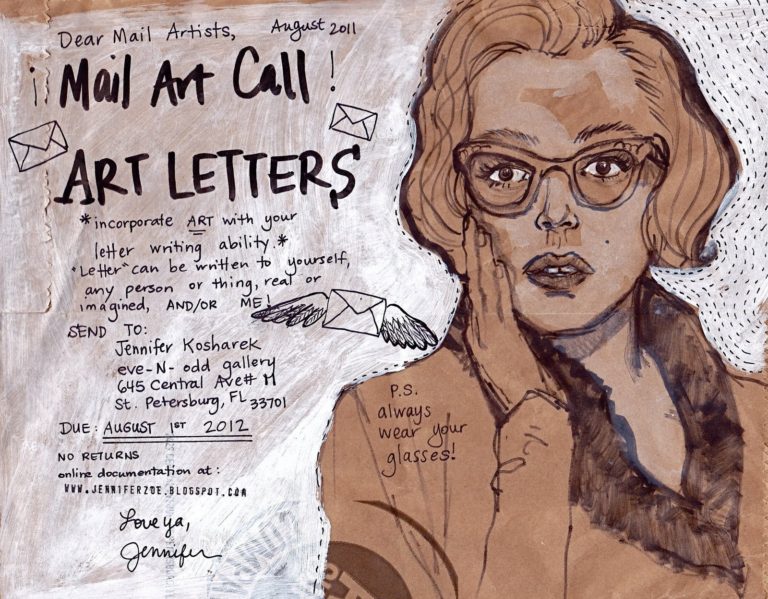 Dear Mail Artists, August 2011
¡Mail Art Call!
ART LETTERS
*incorporate ART with your
letter writing ability.*
"Letter" can be written to yourself,
any person or thing, real or
imagined, AND/OR ME!
SEND TO:
Jennifer Kosharek
eve-N-odd gallery
645 Central Ave# 11
St. Petersburg, FL 33701
DUE: AUGUST 1ST 2012
NO RETURNS
online documentation at:
WWW.JENNIFERZOE.BLOGSPOT.COM
Love ya,
Jennifer
P.S.
always
wear your
glasses!